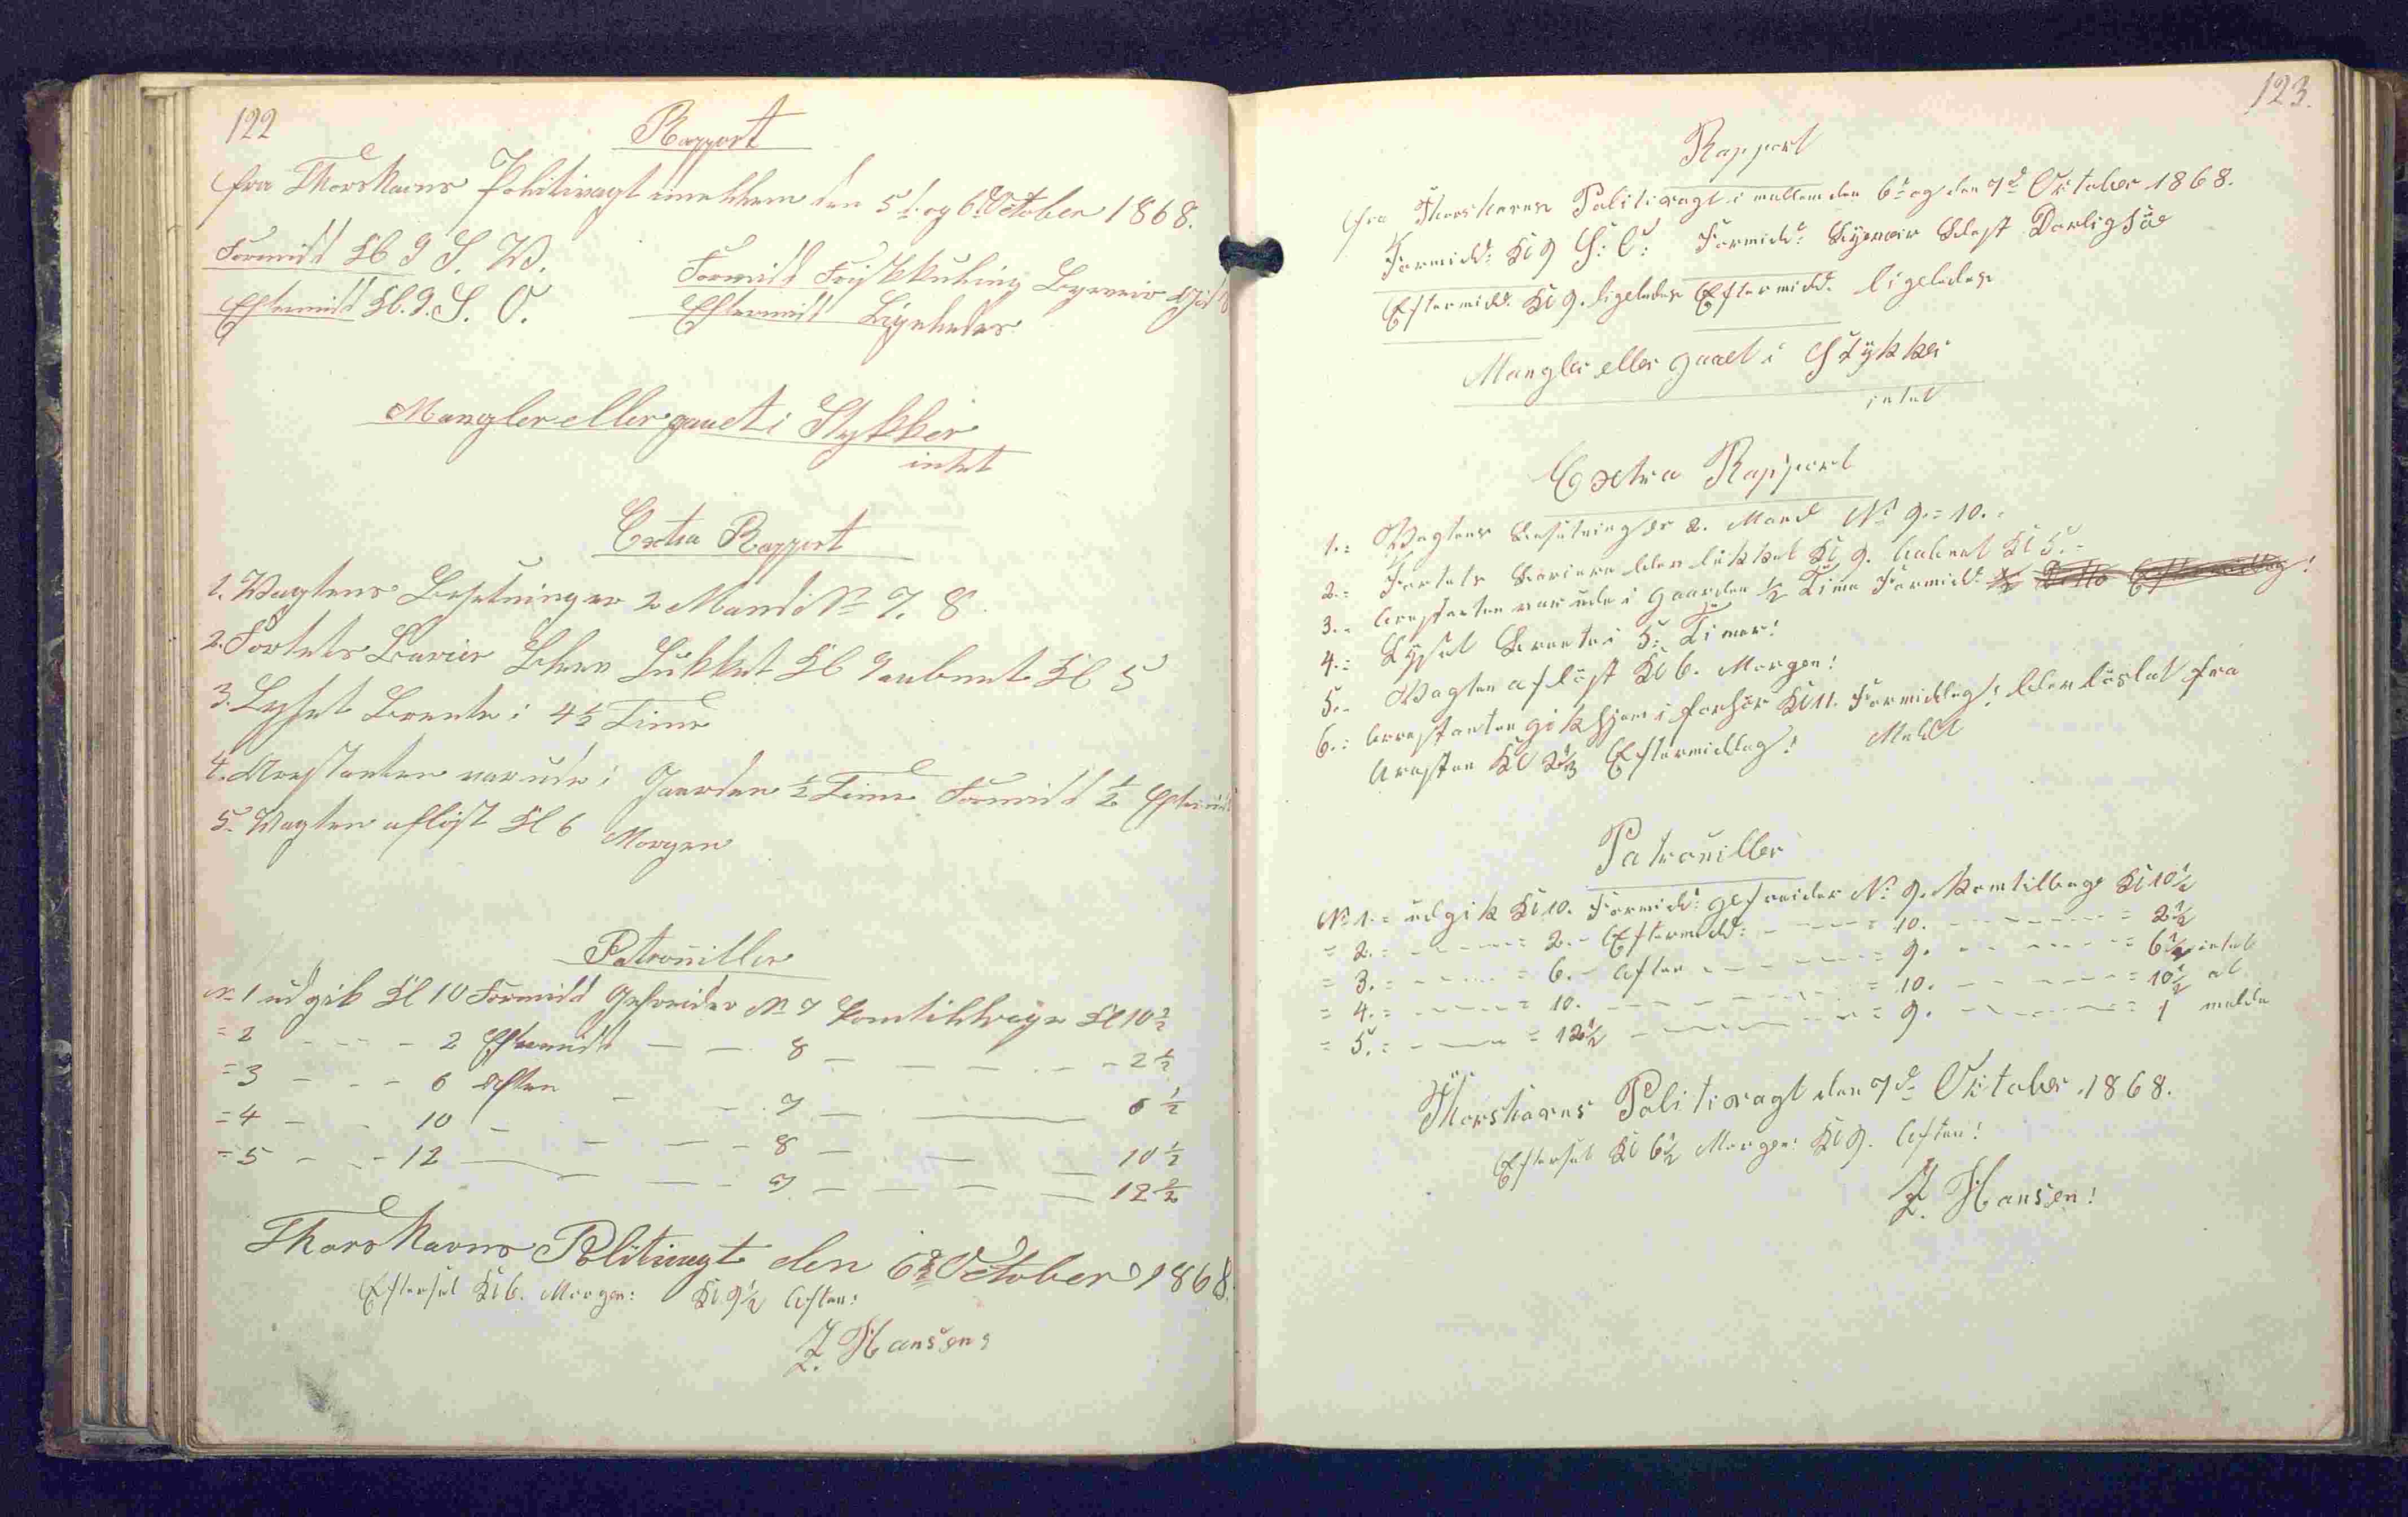 122
Rapport
fra Thorshavns Politivagt imellem den 5t og 6t October 1868.
Formidd Kl 9 S. W. Formidd Frisk Kuling Byeveir
Eftermidd Kl. 9. S. O. Eftermidd Ligeledes
Mangler eller gaaet i Stykker
intet
Extra Rapport
1. Vagtens Besetning er 2 Mand No 7. 8
2. Fortets Barier blev Lukket Kl 9 aabnet Kl 5
3. Lyset Brente i 4½ Time
4. Arestanten var ude i Gaarden ½ Time Formidd ½ Eftermidd
5. Vagten aflöst Kl 6 Morgen
Patrouiller
No 1 udgik Kl 10 Formidd Gefreider No 7 kom tilbage Kl 10½
= 2 - - - - 2 Eftermidd - - 8 - - - - - 2½
= 3 - - - 6 Aften - - 7 - 6½
= 4 - - 10 - - - - 8 - - - 10½
= 5 - - - 12 - - - 7 - - - - 12½
Thorshavns Politivagt den 6t October 1868.
Efterset Kl 6. Morgen: Kl 9½ Aften:
Z. Hansen;
123.
Rapport
fra Thorshavns Politivagt imellem den 6t og den 7d October 1868.
Formidd: Kl 9 S: O: Formidd: Byeveir Blæst Daarlig Söe
Eftermidd. Kl 9. ligeledes Eftermidd. ligeledes
Mangler eller gaaet i Stykker
intet
Extra Rapport
1.= Vagtens Besetning er 2. Mand No 9.= 10.=
2.= Fortets Bariere blev lükket Kl 9. aabnet Kl 5.-
3.- Arestanten var ude i Gaarden ½ Time Formidd: ½ Ditto Eftermiddag!
4.= Lyset Brente i 5: Timer!
5.- Vagten aflöst Kl 6. Morgen!
6.: Arrestanten gik hjem i forhör Kl 11. Formiddag! blev löslat fra
Aresten Kl 2⅓ Eftermiddag!
Patrouiller
No 1.= udgik Kl 10. Formidd: gefreider No 9. kom tilbage Kl 10½
= 2.= - - - = 2.- Eftermidd: - - - = 10. - - - - = 2½
= 3.= - - - = 6.- Aften - - - = 9. - - - - = 6½ intet
= 4.= - - - = 10. - - - - = 10. - - - = 10½ at
= 5.= - - - = 12½ - - - = 9. - - - = 1 melde
Thorshavns Politivagt den 7d October 1868.
Efterset Kl 6½ Morgen: Kl 9. Aften!
Z. Hansen!